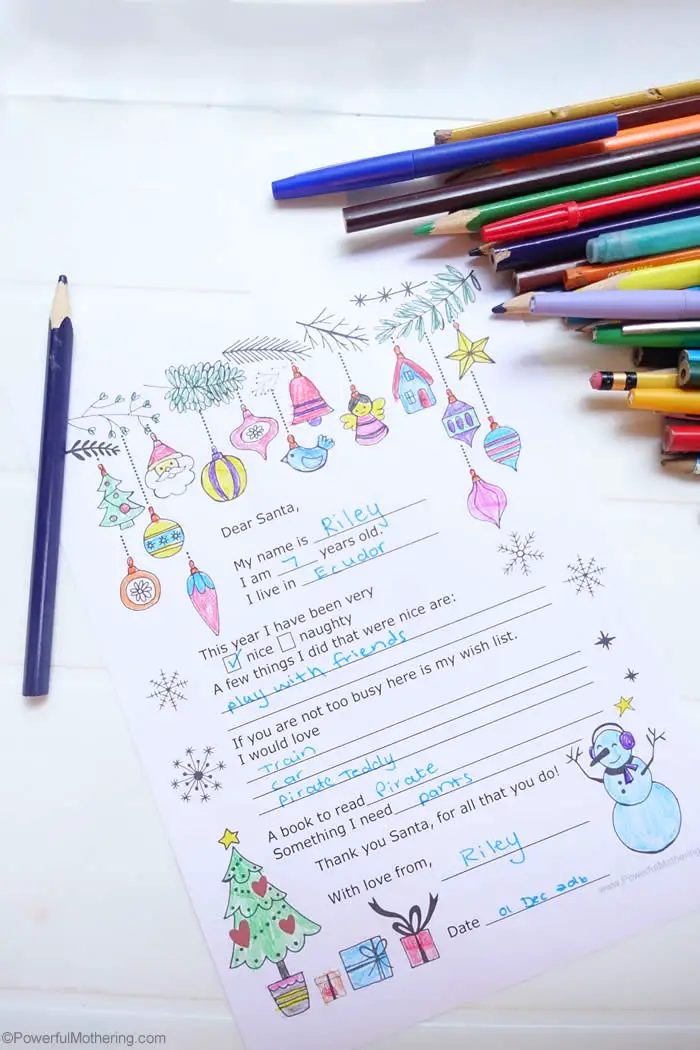 Dear Santa,
My name is Riley
I am 7 years old.
I live in Ecudor
This year I have been very
✓ nice naughty
A few things I did that were nice are:
play with friends
If you are not too busy here is my wish list.
I would love
Train
car
Pirate Teddy
A book to read Pirate
Something I need pants
Thank you Santa, for all that you do!
With love from, Riley
Date 01 Dec 2016
©PowerfulMothering.com